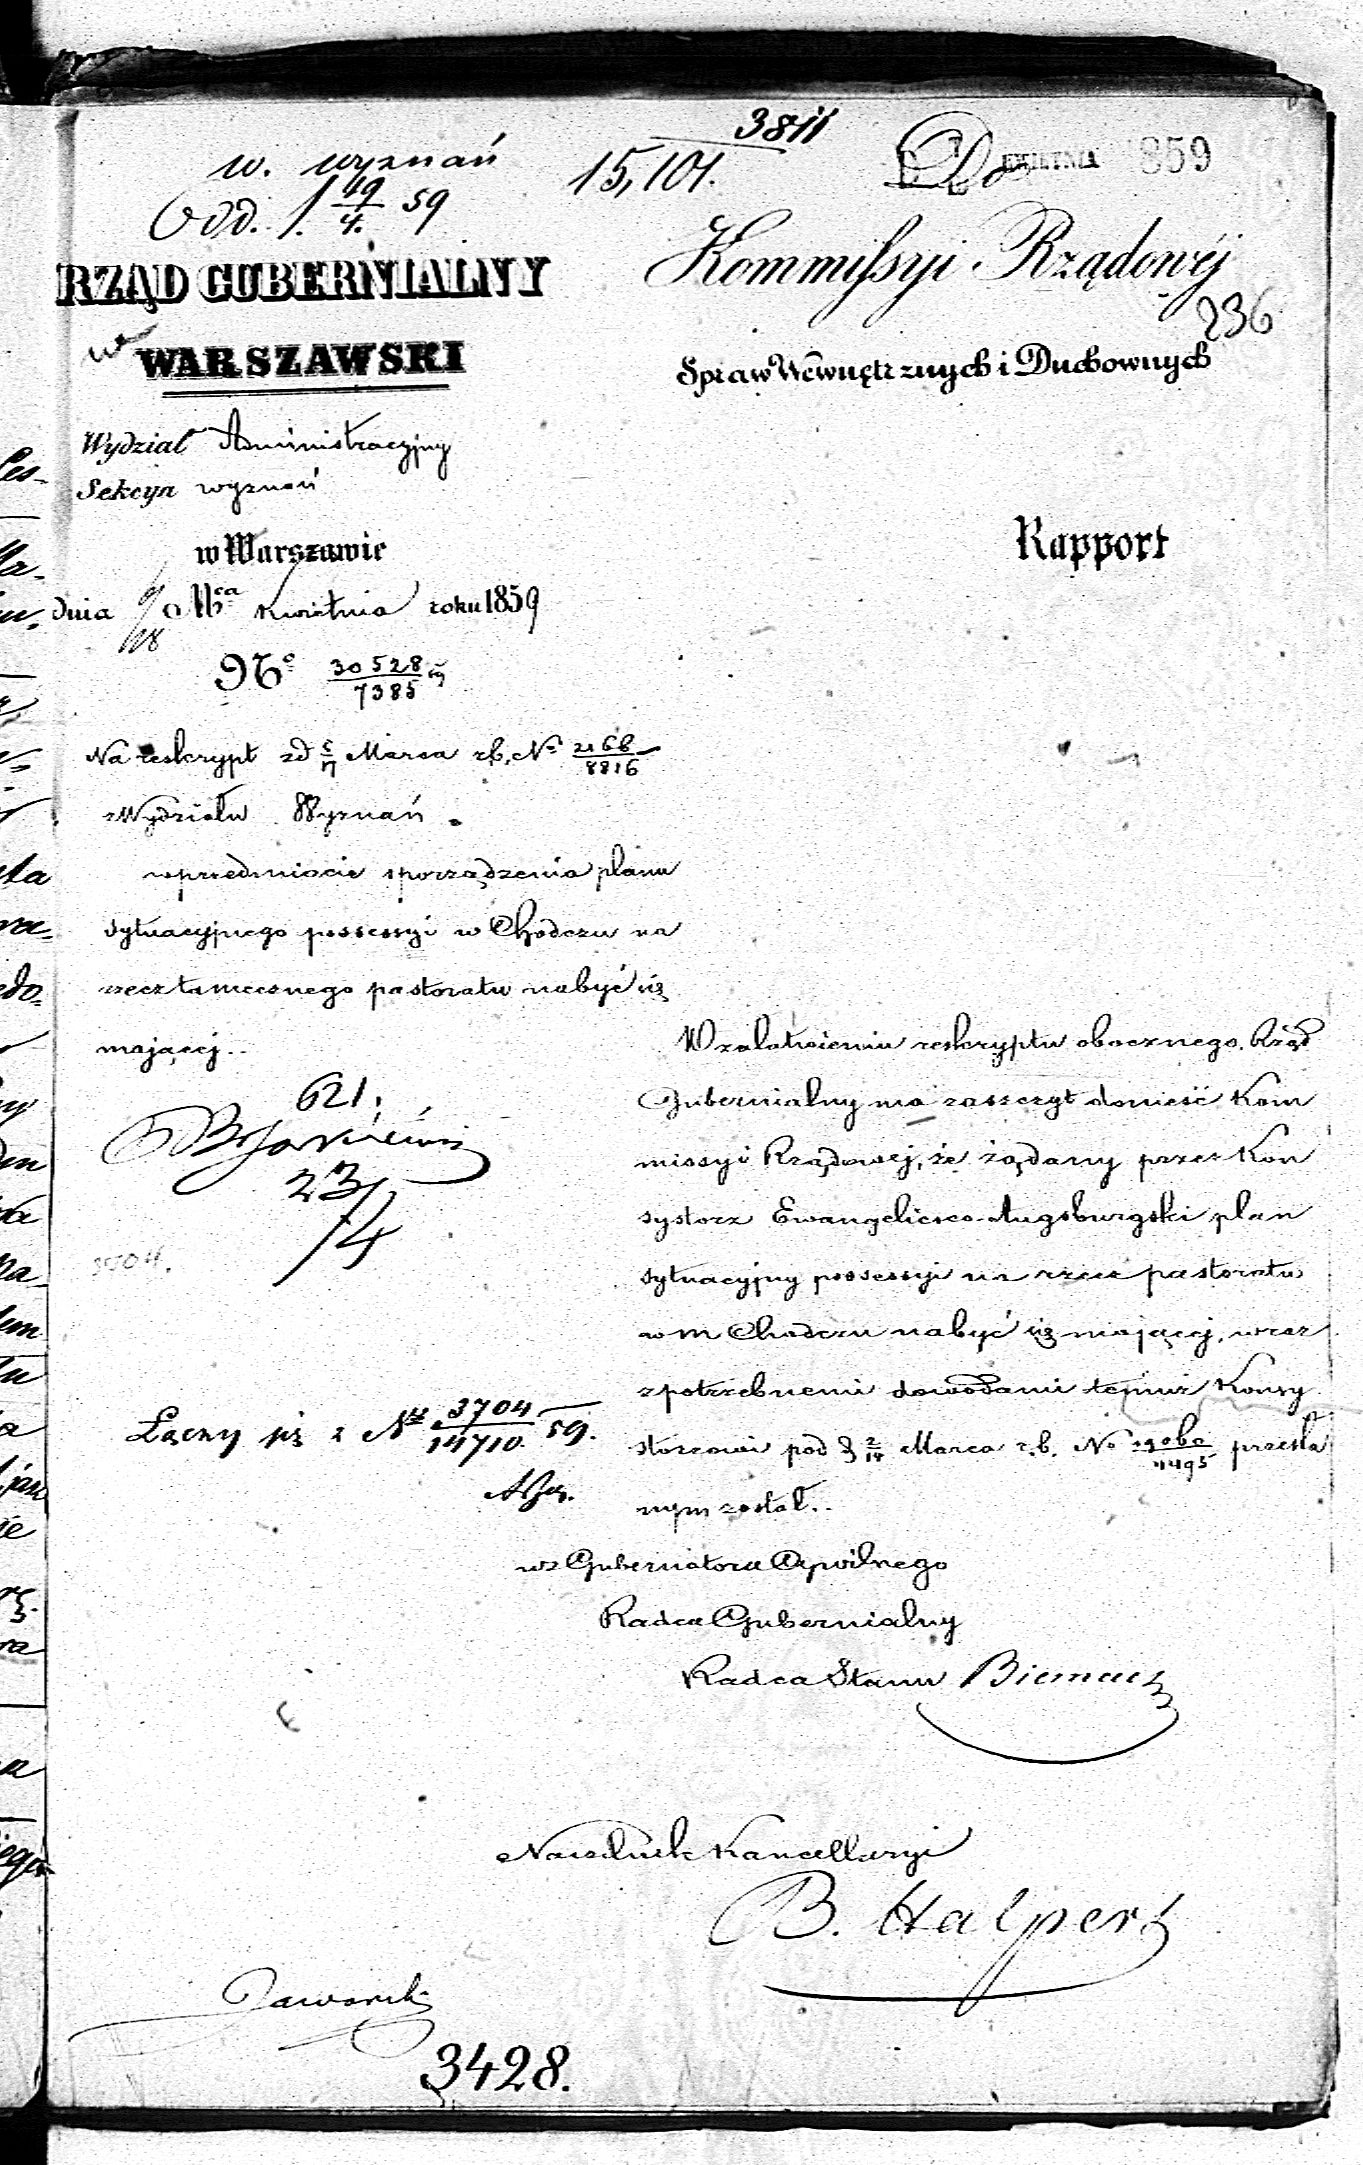 3811
w. wyznań
15,101.
Do
KWIETNIA 1859
Odd. 1. 19/4. 59
RZĄD GUBERNIALNY
WARSZAWSKI
Kommissyi Rządowéj
236
Spraw Wewnętrznych i Duchownych
Wydział Administracyjny
Sekcya wyznań
w Warszawie
Rapport
dnia 6/18 Kwietnia roku 1859
No 30528/7385
Na reskrypt z d 5/17 Marca r.b. No 2166/8816
z Wydziału Wyznań.
w przedmiocie sporządzenia planu
sytuacyjnego possessyi w Chodczu na
rzecz tamecznego pastoratu nabyć się
mającej..
W załatwieniu reskryptu obocznego. Rząd
Gubernialny ma zaszczyt donieść Kom
missyi Rządowej, że żądany przez Kon
systorz Ewangelicko-Augsburgski plan
sytuacyjny possessyi na rzecz pastoratu
w m Chodczu nabyć się mającej, wraz
z potrzebnemi dowodami temuż Konsy
storzowi pod d 2/14 Marca r.b. No przesła
nym został..
621.
23/4
Łączy się z No 3704/14710. 59.
wz Gubernatora Cywilnego
Radca Gubernialny
Radca Stanu
Naczelnik Kancellaryi
B. Halpert
Jaworski
3428.